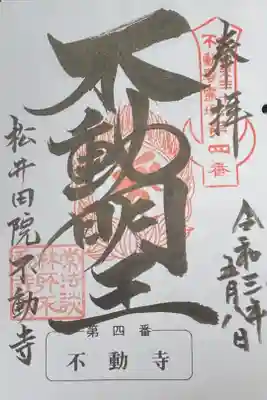 奉拝
令和三年
五月八日
不動明王
松井田院不動寺
第四番
不動寺